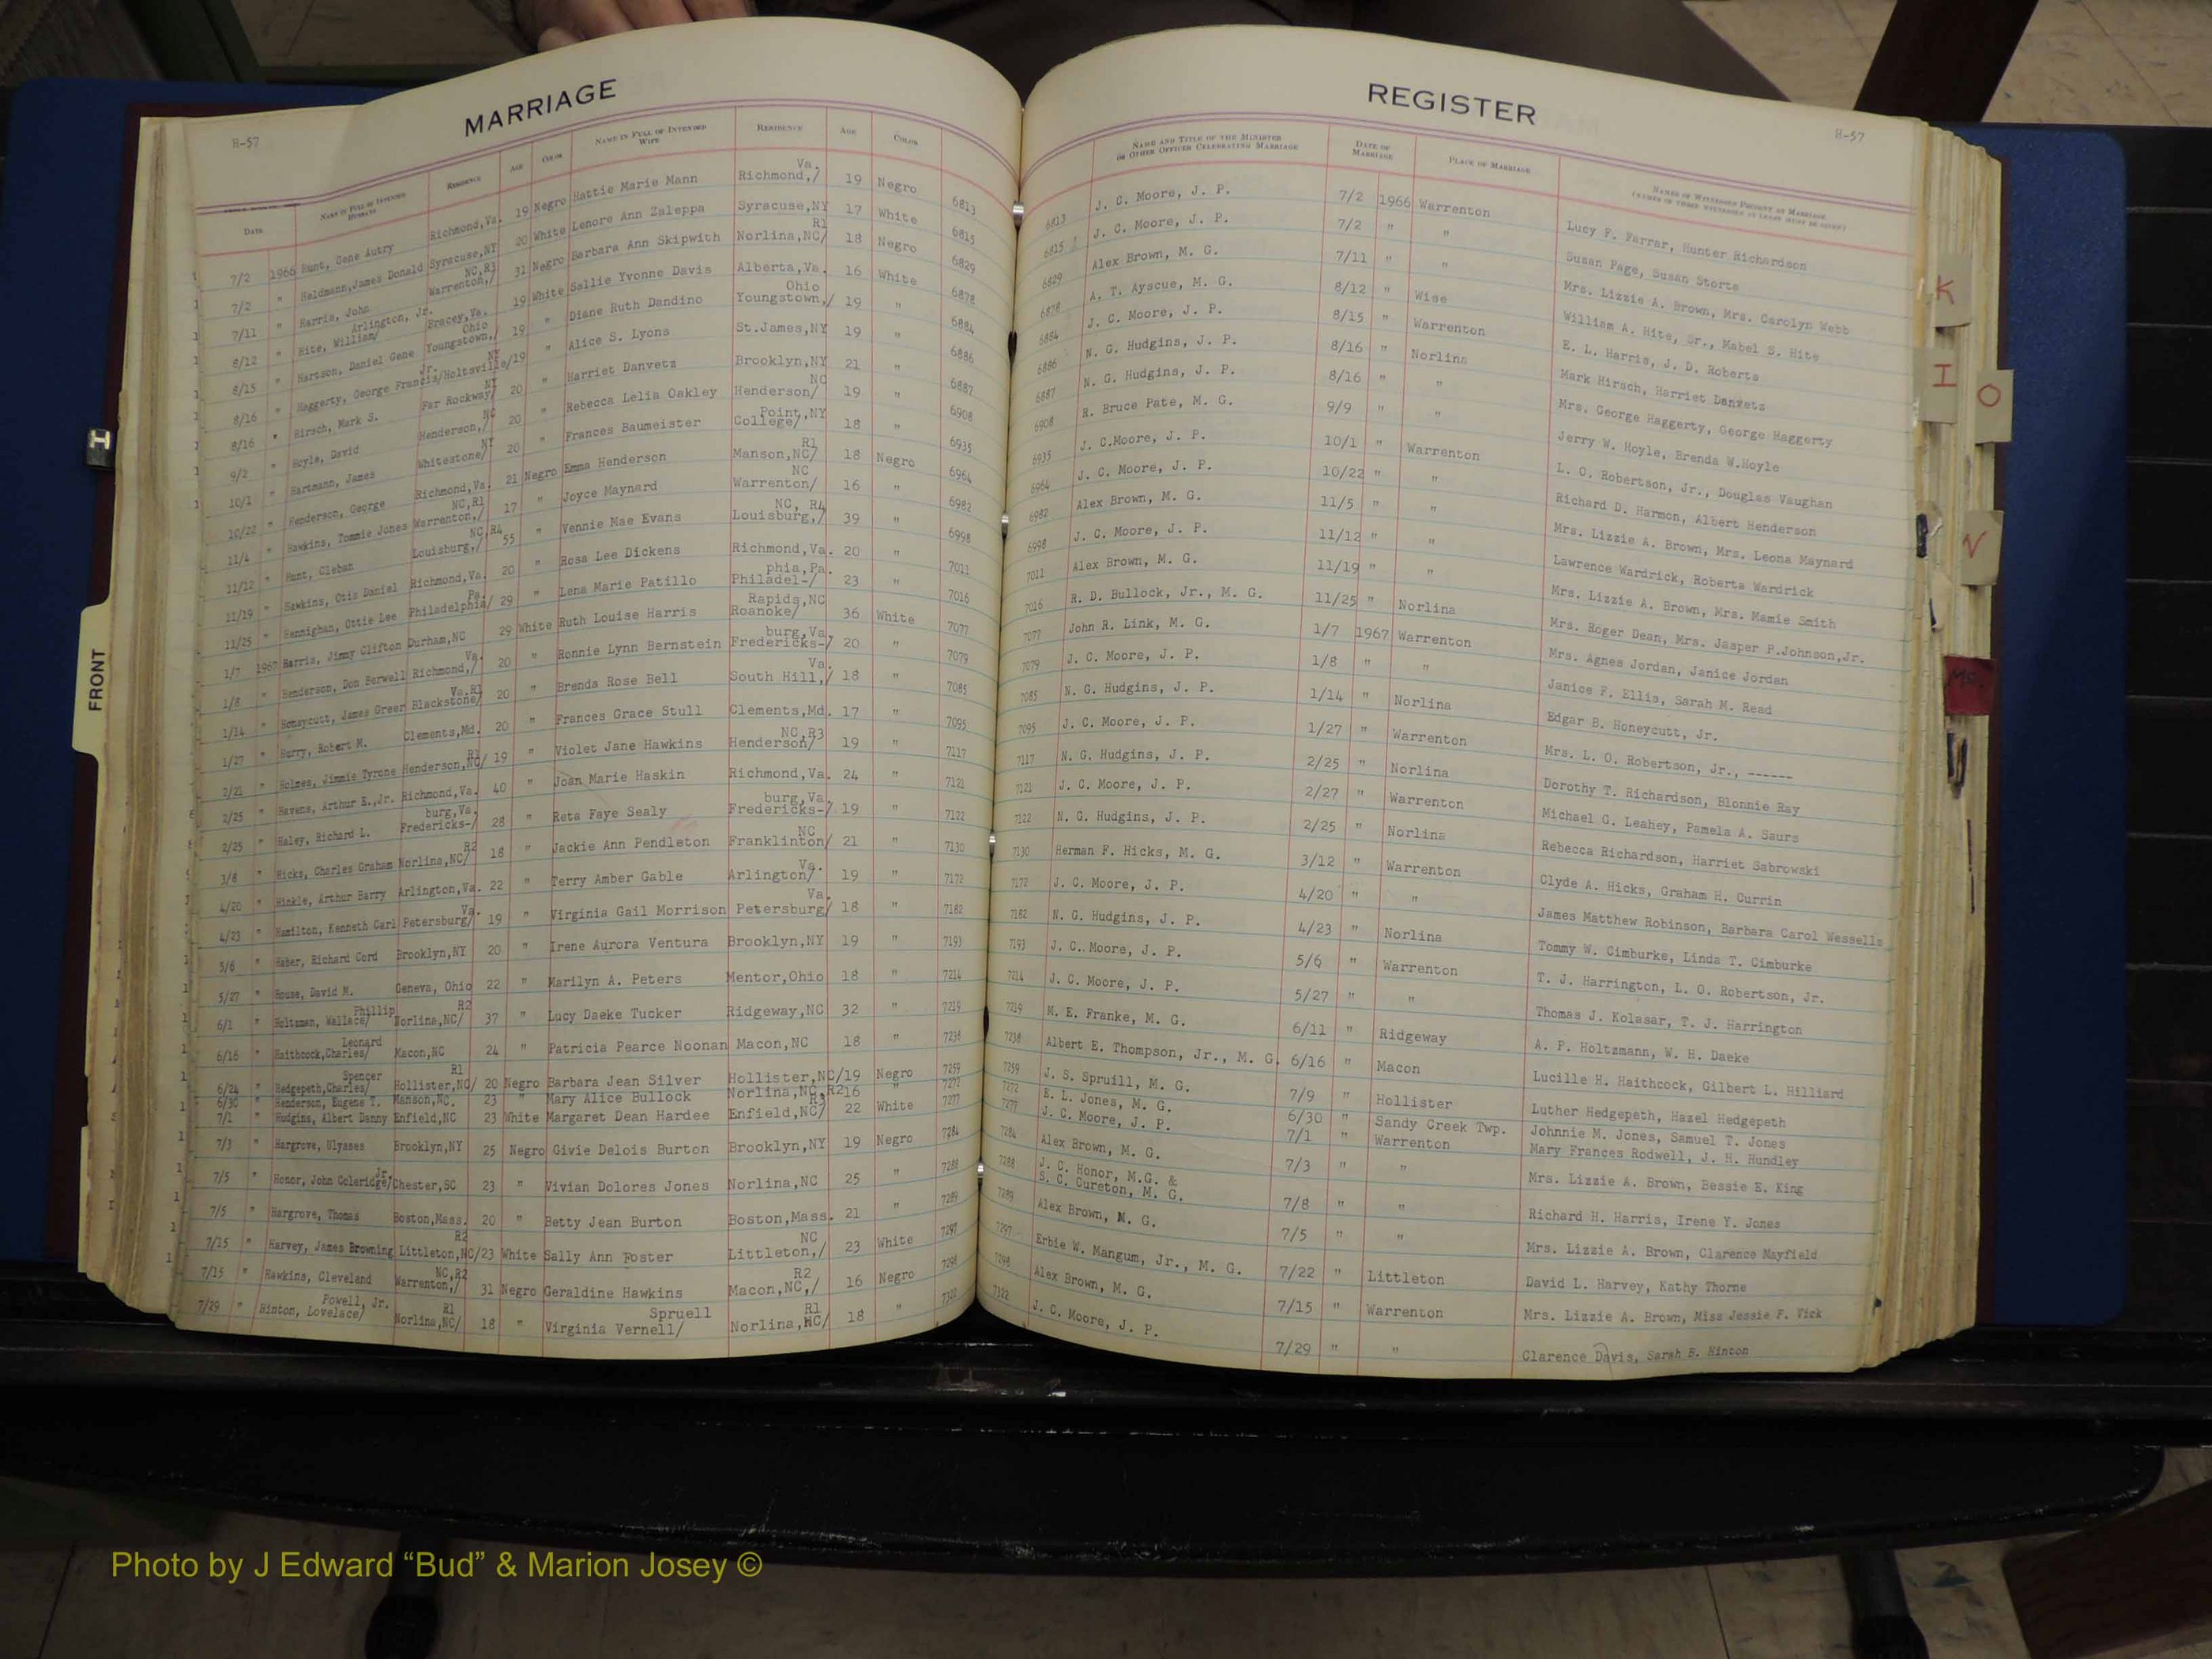 MARRIAGE
H-57
DATE NAME IN FULL OF INTENDED HUSBAND RESIDENCE AGE COLOR NAME IN FULL OF INTENDED WIFE RESIDENCE AGE COLOR
7/2 1966 Hunt, Gene Autry Richmond,Va. 19 Negro Hattie Marie Mann Richmond,/ Va. 19 Negro 6813
7/2 " Heldmann,James Donald Syracuse,NY 20 White Lenore Ann Zaleppa Syracuse,NY 17 White 6815
7/11 " Harris, John Warrenton,/ NC,R3 31 Negro Barbara Ann Skipwith Norlina,NC/ R1 18 Negro 6829
8/12 " Hite, William/ Arlington, Jr. Bracey,Va. 19 White Sallie Yvonne Davis Alberta,Va. 16 White 6878
8/15 " Hartson, Daniel Gene Youngstown,/ Ohio 19 " Diane Ruth Dandino Youngstown,/ Ohio 19 " 6884
8/16 " Haggerty, George Francis/ Jr. Holtsville/ NY 19 " Alice S. Lyons St.James,NY 19 " 6886
8/16 " Hirsch, Mark S. Far Rockway/ NY 20 " Harriet Danvetz Brooklyn,NY 21 " 6887
9/2 " Hoyle, David Henderson,/ NC 20 " Rebecca Lelia Oakley Henderson/ NC 19 " 6908
10/1 " Hartmann, James Whitestone/ NY 20 " Frances Baumeister College/ Point,NY 18 " 6935
10/22 " Henderson, George Richmond,Va. 21 Negro Emma Henderson Manson,NC/ R1 18 Negro 6964
11/4 " Hawkins, Tommie Jones Warrenton,/ NC,R1 17 " Joyce Maynard Warrenton/ NC 16 " 6982
11/12 " Hunt, Cleban Louisburg,/ NC,R4 55 " Vennie Mae Evans Louisburg,/ NC, R4 39 " 6998
11/19 " Hawkins, Otis Daniel Richmond,Va. 20 " Rosa Lee Dickens Richmond,Va. 20 " 7011
11/25 " Hannighan, Ottie Lee Philadelphia/ Pa. 29 " Lena Marie Patillo Philadel-/ phia,Pa. 23 " 7016
1/7 1967 Harris, Jimmy Clifton Durham,NC 29 White Ruth Louise Harris Roanoke/ Rapids,NC 36 White 7077
1/8 " Henderson, Don Berwell Richmond,/ Va. 20 " Ronnie Lynn Bernstein Fredericks-/ burg,Va. 20 " 7079
1/14 " Honeycutt, James Greer Blackstone/ Va.R1 20 " Brenda Rose Bell South Hill,/ Va. 18 " 7085
1/27 " Hurry, Robert M. Clements,Md. 20 " Frances Grace Stull Clements,Md. 17 " 7095
2/21 " Holmes, Jimmie Tyrone Henderson,NC/ R1 19 " Violet Jane Hawkins Henderson/ NC,R3 19 " 7117
2/25 " Havens, Arthur E.,Jr. Richmond,Va. 40 " Joan Marie Haskin Richmond,Va. 24 " 7121
2/25 " Haley, Richard L. Fredericks-/ burg,Va. 28 " Reta Faye Sealy Fredericks-/ burg,Va. 19 " 7122
3/8 " Hicks, Charles Graham Norlina,NC/ R2 18 " Jackie Ann Pendleton Franklinton/ NC 21 " 7130
4/20 " Hinkle, Arthur Barry Arlington,Va. 22 " Terry Amber Gable Arlington/ Va. 19 " 7172
4/23 " Hamilton, Kenneth Carl Petersburg/ Va. 19 " Virginia Gail Morrison Petersburg/ Va. 18 " 7182
5/6 " Haber, Richard Cord Brooklyn,NY 20 " Irene Aurora Ventura Brooklyn,NY 19 " 7193
5/27 " House, David M. Geneva, Ohio 22 " Marilyn A. Peters Mentor,Ohio 18 " 7214
6/1 " Holtzman, Wallace/ Phillip Norlina,NC/ R2 37 " Lucy Daeke Tucker Ridgeway,NC 32 " 7219
6/16 " Haithcock,Charles/ Leonard Macon,NC 24 " Patricia Pearce Noonan Macon,NC 18 " 7238
6/24 " Hedgepeth,Charles/ Spencer Hollister,NC/ R1 20 Negro Barbara Jean Silver Hollister,NC/19 Negro 7259
6/30 " Henderson, Eugene T. Manson,NC. 23 " Mary Alice Bullock Norlina,NC,R2 16 " 7272
7/1 " Hudgins, Albert Danny Enfield,NC 23 White Margaret Dean Hardee Enfield,NC/ R3 22 White 7277
7/3 " Hargrove, Ulysses Brooklyn,NY 25 Negro Givie Delois Burton Brooklyn,NY 19 Negro 7284
7/5 " Honor, John Coleridge/ Jr. Chester,SC 23 " Vivian Dolores Jones Norlina,NC 25 " 7288
7/5 " Hargrove, Thomas Boston,Mass. 20 " Betty Jean Burton Boston,Mass. 21 " 7289
7/15 " Harvey, James Browning Littleton,NC/ R2 23 White Sally Ann Foster Littleton,/ NC 23 White 7297
7/15 " Hawkins, Cleveland Warrenton,/ NC,R2 31 Negro Geraldine Hawkins Macon,NC,/ R2 16 Negro 7298
7/29 " Hinton, Lovelace/ Powell, Jr. Norlina,NC/ R1 18 " Virginia Vernell/ Spruell Norlina,NC/ R1 18 " 7322
REGISTER
H-57
NAME AND TITLE OF THE MINISTER OR OTHER OFFICER CELEBRATING MARRIAGE DATE OF MARRIAGE PLACE OF MARRIAGE NAMES OF WITNESSES PRESENT AT MARRIAGE
6813 J. C. Moore, J. P. 7/2 1966 Warrenton Lucy F. Farrar, Hunter Richardson
6815 J. C. Moore, J. P. 7/2 " " Susan Page, Susan Storte
6829 Alex Brown, M. G. 7/11 " " Mrs. Lizzie A. Brown, Mrs. Carolyn Webb
6878 A. T. Ayscue, M. G. 8/12 " Wise William A. Hite, Sr., Mabel S. Hite
6884 J. C. Moore, J. P. 8/15 " Warrenton E. L. Harris, J. D. Roberts
6886 N. G. Hudgins, J. P. 8/16 " Norlina Mark Hirsch, Harriet Danvetz
6887 N. G. Hudgins, J. P. 8/16 " " Mrs. George Haggerty, George Haggerty
6908 R. Bruce Pate, M. G. 9/9 " " Jerry W. Hoyle, Brenda W.Hoyle
6935 J. C.Moore, J. P. 10/1 " Warrenton L. O. Robertson, Jr., Douglas Vaughan
6964 J. C. Moore, J. P. 10/22 " " Richard D. Harmon, Albert Henderson
6982 Alex Brown, M. G. 11/5 " " Mrs. Lizzie A. Brown, Mrs. Leona Maynard
6998 J. C. Moore, J. P. 11/12 " " Lawrence Wardrick, Roberta Wardrick
7011 Alex Brown, M. G. 11/19 " " Mrs. Lizzie A. Brown, Mrs. Mamie Smith
7016 R. D. Bullock, Jr., M. G. 11/25 " Norlina Mrs. Roger Dean, Mrs. Jasper P.Johnson,Jr.
7077 John R. Link, M. G. 1/7 1967 Warrenton Mrs. Agnes Jordan, Janice Jordan
7079 J. C. Moore, J. P. 1/8 " " Janice F. Ellis, Sarah M. Read
7085 N. G. Hudgins, J. P. 1/14 " Norlina Edgar B. Honeycutt, Jr.
7095 J. C. Moore, J. P. 1/27 " Warrenton Mrs. L. O. Robertson, Jr., ------
7117 N. G. Hudgins, J. P. 2/25 " Norlina Dorothy T. Richardson, Blonnie Ray
7121 J. C. Moore, J. P. 2/27 " Warrenton Michael G. Leahey, Pamela A. Saurs
7122 N. G. Hudgins, J. P. 2/25 " Norlina Rebecca Richardson, Harriet Sabrowski
7130 Herman F. Hicks, M. G. 3/12 " Warrenton Clyde A. Hicks, Graham H. Currin
7172 J. C. Moore, J. P. 4/20 " " James Matthew Robinson, Barbara Carol Wessells
7182 N. G. Hudgins, J. P. 4/23 " Norlina Tommy W. Cimburke, Linda T. Cimburke
7193 J. C. Moore, J. P. 5/6 " Warrenton T. J. Harrington, L. O. Robertson, Jr.
7214 J. C. Moore, J. P. 5/27 " " Thomas J. Kolasar, T. J. Harrington
7219 M. E. Franke, M. G. 6/11 " Ridgeway A. P. Holtzmann, W. H. Daeke
7238 Albert E. Thompson, Jr., M. G. 6/16 " Macon Lucille H. Haithcock, Gilbert L. Hilliard
7259 J. S. Spruill, M. G. 7/9 " Hollister Luther Hedgepeth, Hazel Hedgepeth
7272 E. L. Jones, M. G. 6/30 " Sandy Creek Twp. Johnnie M. Jones, Samuel T. Jones
7277 J. C. Moore, J. P. 7/1 " Warrenton Mary Frances Rodwell, J. H. Hundley
7284 Alex Brown, M. G. 7/3 " " Mrs. Lizzie A. Brown, Bessie E. King
7288 J. C. Honor, M.G. & S. C. Cureton, M. G. 7/8 " " Richard H. Harris, Irene Y. Jones
7289 Alex Brown, M. G. 7/5 " " Mrs. Lizzie A. Brown, Clarence Mayfield
7297 Erbie W. Mangum, Jr., M. G. 7/22 " Littleton David L. Harvey, Kathy Thorne
7298 Alex Brown, M. G. 7/15 " Warrenton Mrs. Lizzie A. Brown, Miss Jessie F. Vick
7322 J. C. Moore, J. P. 7/29 " " Clarence Davis, Sarah B. Hinton
FRONT
H
K
I
O
V
Mc
Photo by J Edward “Bud” & Marion Josey ©